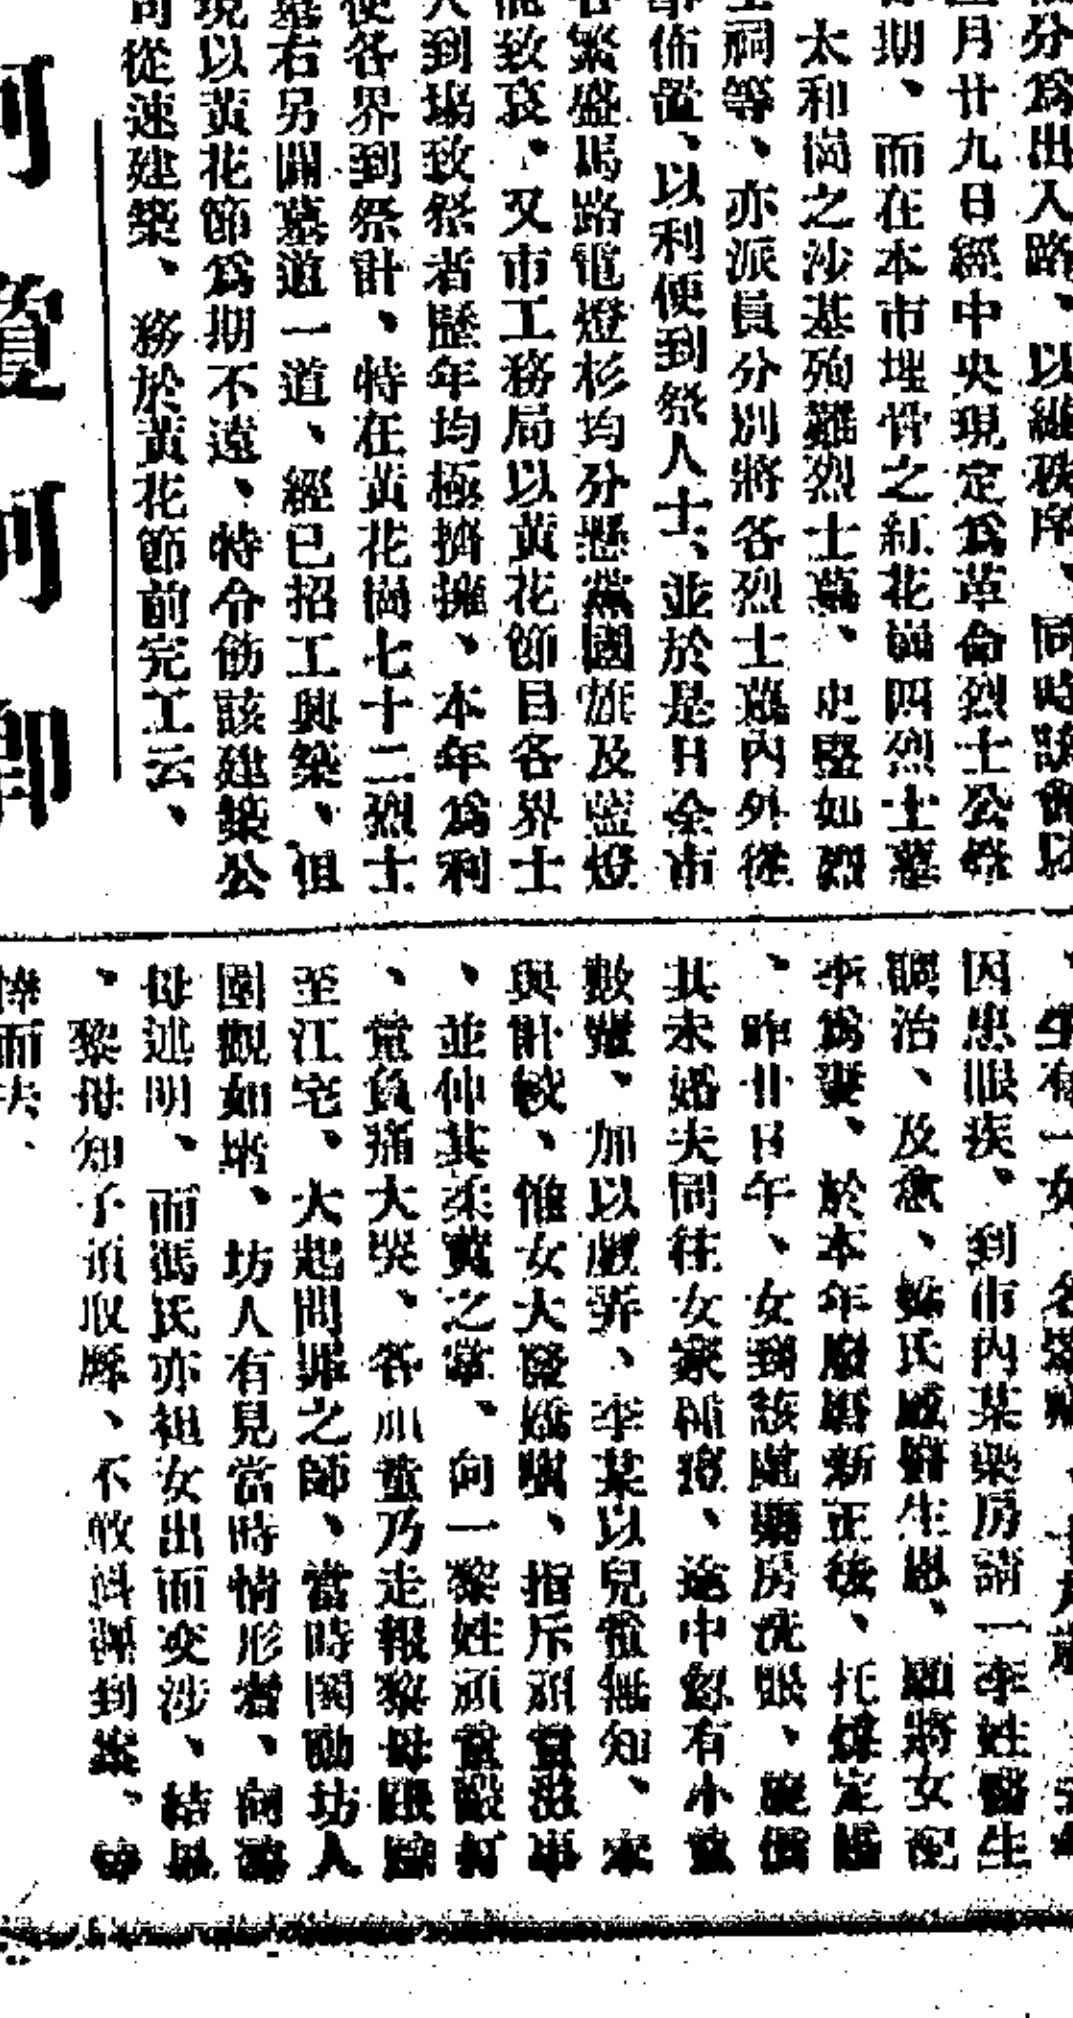 分爲出入路、以維秩序、同時
月廿九日經中央現定爲革命烈士公祭
期、而在本市埋骨之紅花崗四烈士墓
太和崗之沙基殉難烈士墓、史堅如烈
祠等、亦派員分別將各烈士墓內外從
佈置、以利便到祭人士、並於是日全市
繁盛馬路電燈杉均分懸黨國旗及藍燈
致哀、又市工務局以黃花節日各界士
到塲致祭者歷年均極擠擁、本年爲利
便各界到祭計、特在黃花崗七十二烈士
墓右另闢墓道一道、經已招工興築、但
現以黃花節爲期不遠、特令飭該建築公
司從速建築、務於黃花節前完工云、
生有一女
因患眼疾、到市內某藥房請一李姓醫生
調治、及愈、氏感醫生恩、願將女配
李爲妻、於本年廢曆新正後、托媒定婚
、昨廿日午、女到該處藥房洗眼、
其未婚夫同往女家、途中忽有小童
數輩、加以戲弄、李某以兒童無知、未
與計較、惟女大發嬌嗔、指斥頑童滋事
、並伸其柔荑之掌、向一黎姓頑童毆打
、童負痛大哭、各小童乃走報黎母
至江宅、大起問罪之師、當時閧動坊人
圍觀如堵、坊人有見當時情形者、向
母述明、而馮氏亦袒女出而交涉、結果
、黎母知子頑取辱、不敢糾纏到案、
悻而去、